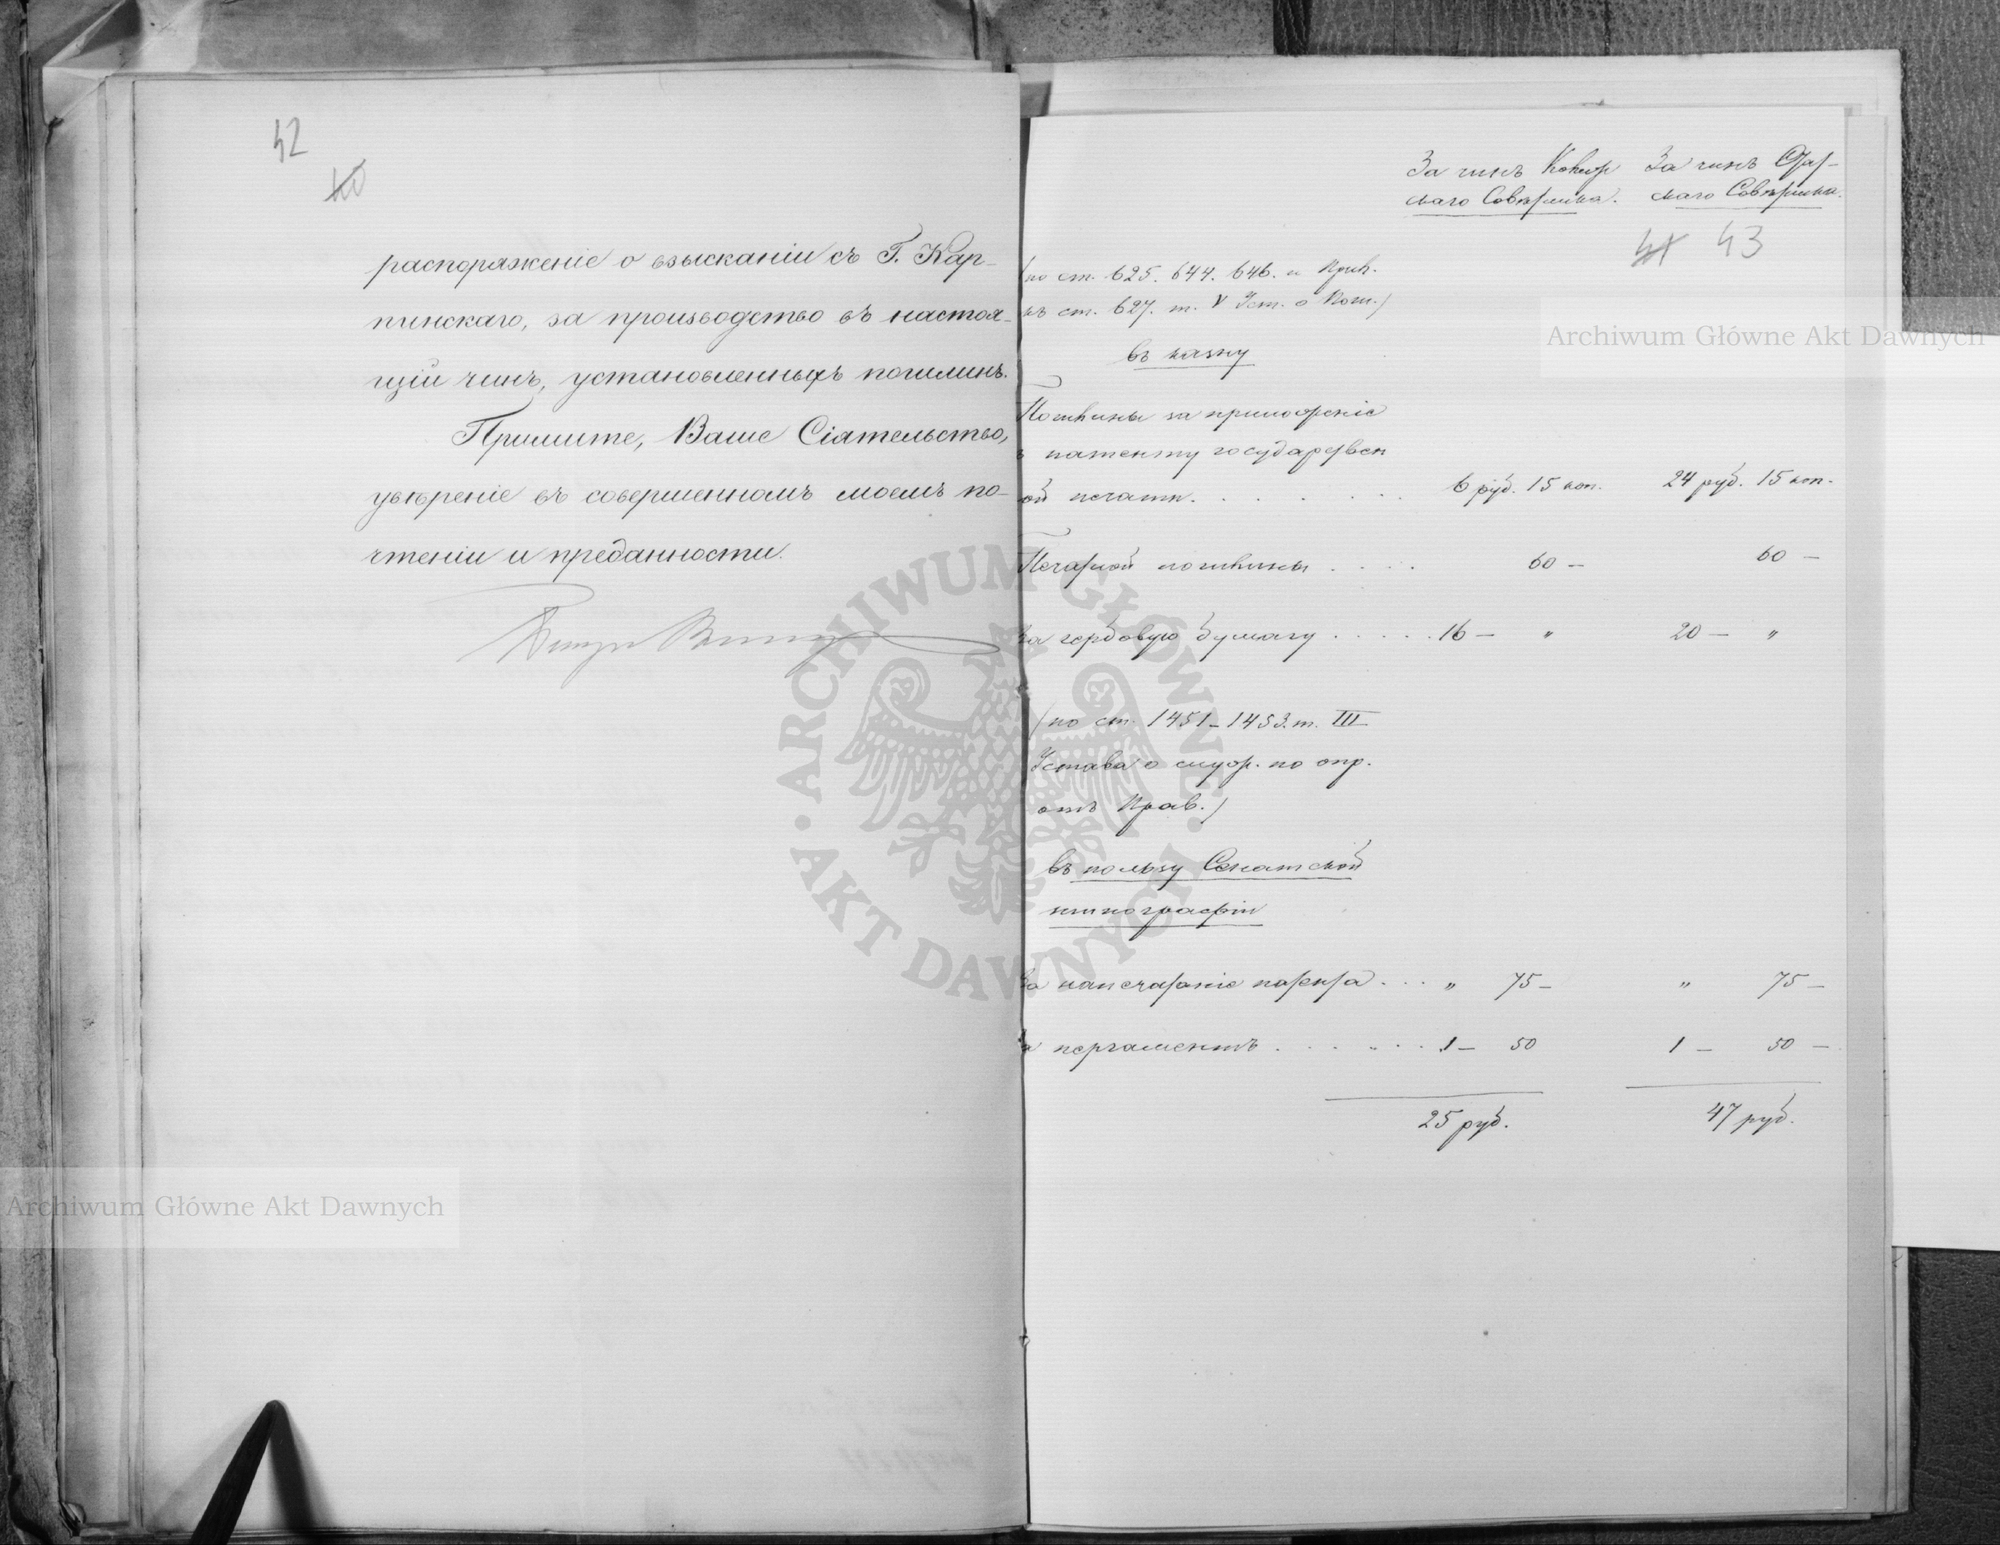 42
40
распоряженіе о взысканіи съ Г. Кар-
пинскаго, за производство въ настоя-
щій чинъ, установленныхъ пошлинъ.
Примите, Ваше Сіятельство,
увѣреніе въ совершенномъ моемъ по-
чтеніи и преданности.
За чинъ Статскаго Совѣтника.
41 43
(по ст. 625. 644. 646. и Прил.
къ ст. 627. т. V Уст. о Пош.)
въ казну
Пошлины за приложеніе
къ патенту государствен
ой печати. 6 руб. 15 коп. 24 руб. 15 коп.
Печатной пошлины . . . . 60 — 60 —
За гербовую бумагу . . . . . 16 — " 20 — "
(по ст. 1451 - 1453. т. III
Устава о служ. по опр.
отъ Прав.)
въ пользу Сенатской
типографіи
За напечатаніе патента . . . " 75 — " 75 —
пергаментъ . . . . . . . 1 — 50 1 — 50 —
25 руб. 47 руб.
Archiwum Główne Akt Dawnych
Archiwum Główne Akt Dawnych
ARCHIWUM GŁÓWNE AKT DAWNYCH